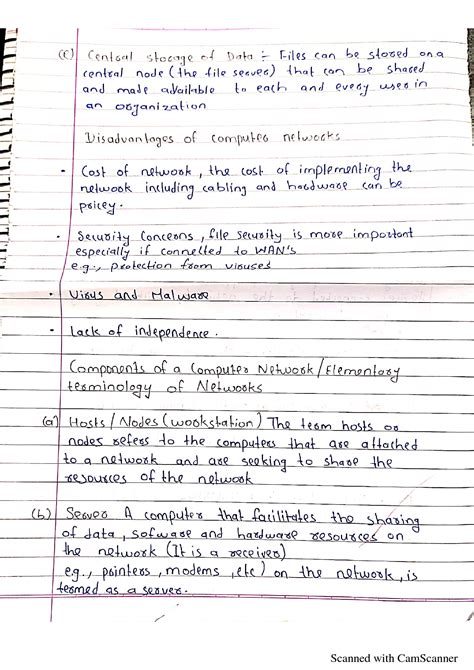 (c) Central storage of Data :- Files can be stored on a
central node (the file server) that can be shared
and made available to each and every user in
an organization
Disadvantages of computer networks
• Cost of network, the cost of implementing the
network including cabling and hardware can be
pricey.
• Security Concerns, file security is more important
especially if connected to WAN's
e.g., protection from viruses
• Virus and Malware
• Lack of independence.
Components of a Computer Network/Elementary
terminology of Networks
(a) Hosts/Nodes (workstation) The term hosts or
nodes refers to the computers that are attached
to a network and are seeking to share the
resources of the network
(b) Server A computer that facilitates the sharing
of data, sofware and hardware resources on
the network (It is a receiver)
eg., pointers, modems, etc) on the network, is
termed as a server.
Scanned with CamScanner